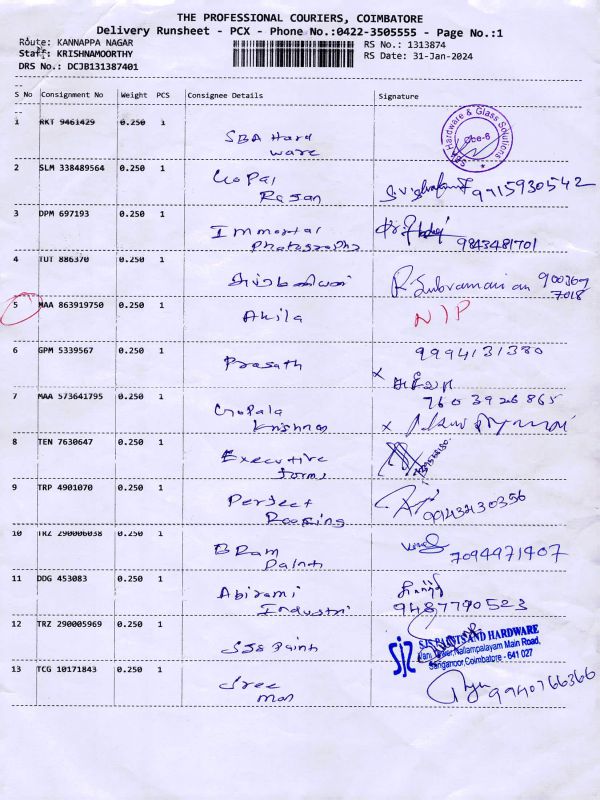 THE PROFESSIONAL COURIERS, COIMBATORE
Delivery Runsheet - PCX - Phone No.:0422-3505555 - Page No.:1
Route: KANNAPPA NAGAR
RS No.: 1313874
Staff: KRISHNAMOORTHY
RS Date: 31-Jan-2024
DRS No.: DCJB131387401
S No Consignment No Weight PCS Consignee Details Signature
1 RKT 9461429 0.250 1
SBA Hard
ware
SBA Hardware & Glass Solutions
Cbe-6
2 SLM 338489564 0.250 1
Gopal
Rasan
9915930542
3 DPM 697193 0.250 1
Immortal
Photography
9843481701
4 TUT 886370 0.250 1
R. Subramanian
7018
5 MAA 863919750 0.250 1
Akila
N/P
6 GPM 5339567 0.250 1
Prasath
9994131380
x
7 MAA 573641795 0.250 1
Gopala
Krishnan
7603926865
x
8 TEN 7630647 0.250 1
Executive
forms
9 TRP 4901070 0.250 1
Perfect
Roofing
9943430356
10 TRZ 290006038 0.250 1
B Ram
Paints
7094971407
11 DDG 453083 0.250 1
Abirami
Industri
9487790523
12 TRZ 290005969 0.250 1
SJS Paints
SJS PAINTS AND HARDWARE
Nallampalayam Main Road,
Sanganoor, Coimbatore - 641 027
13 TCG 10171843 0.250 1
Sree
man
9940766366